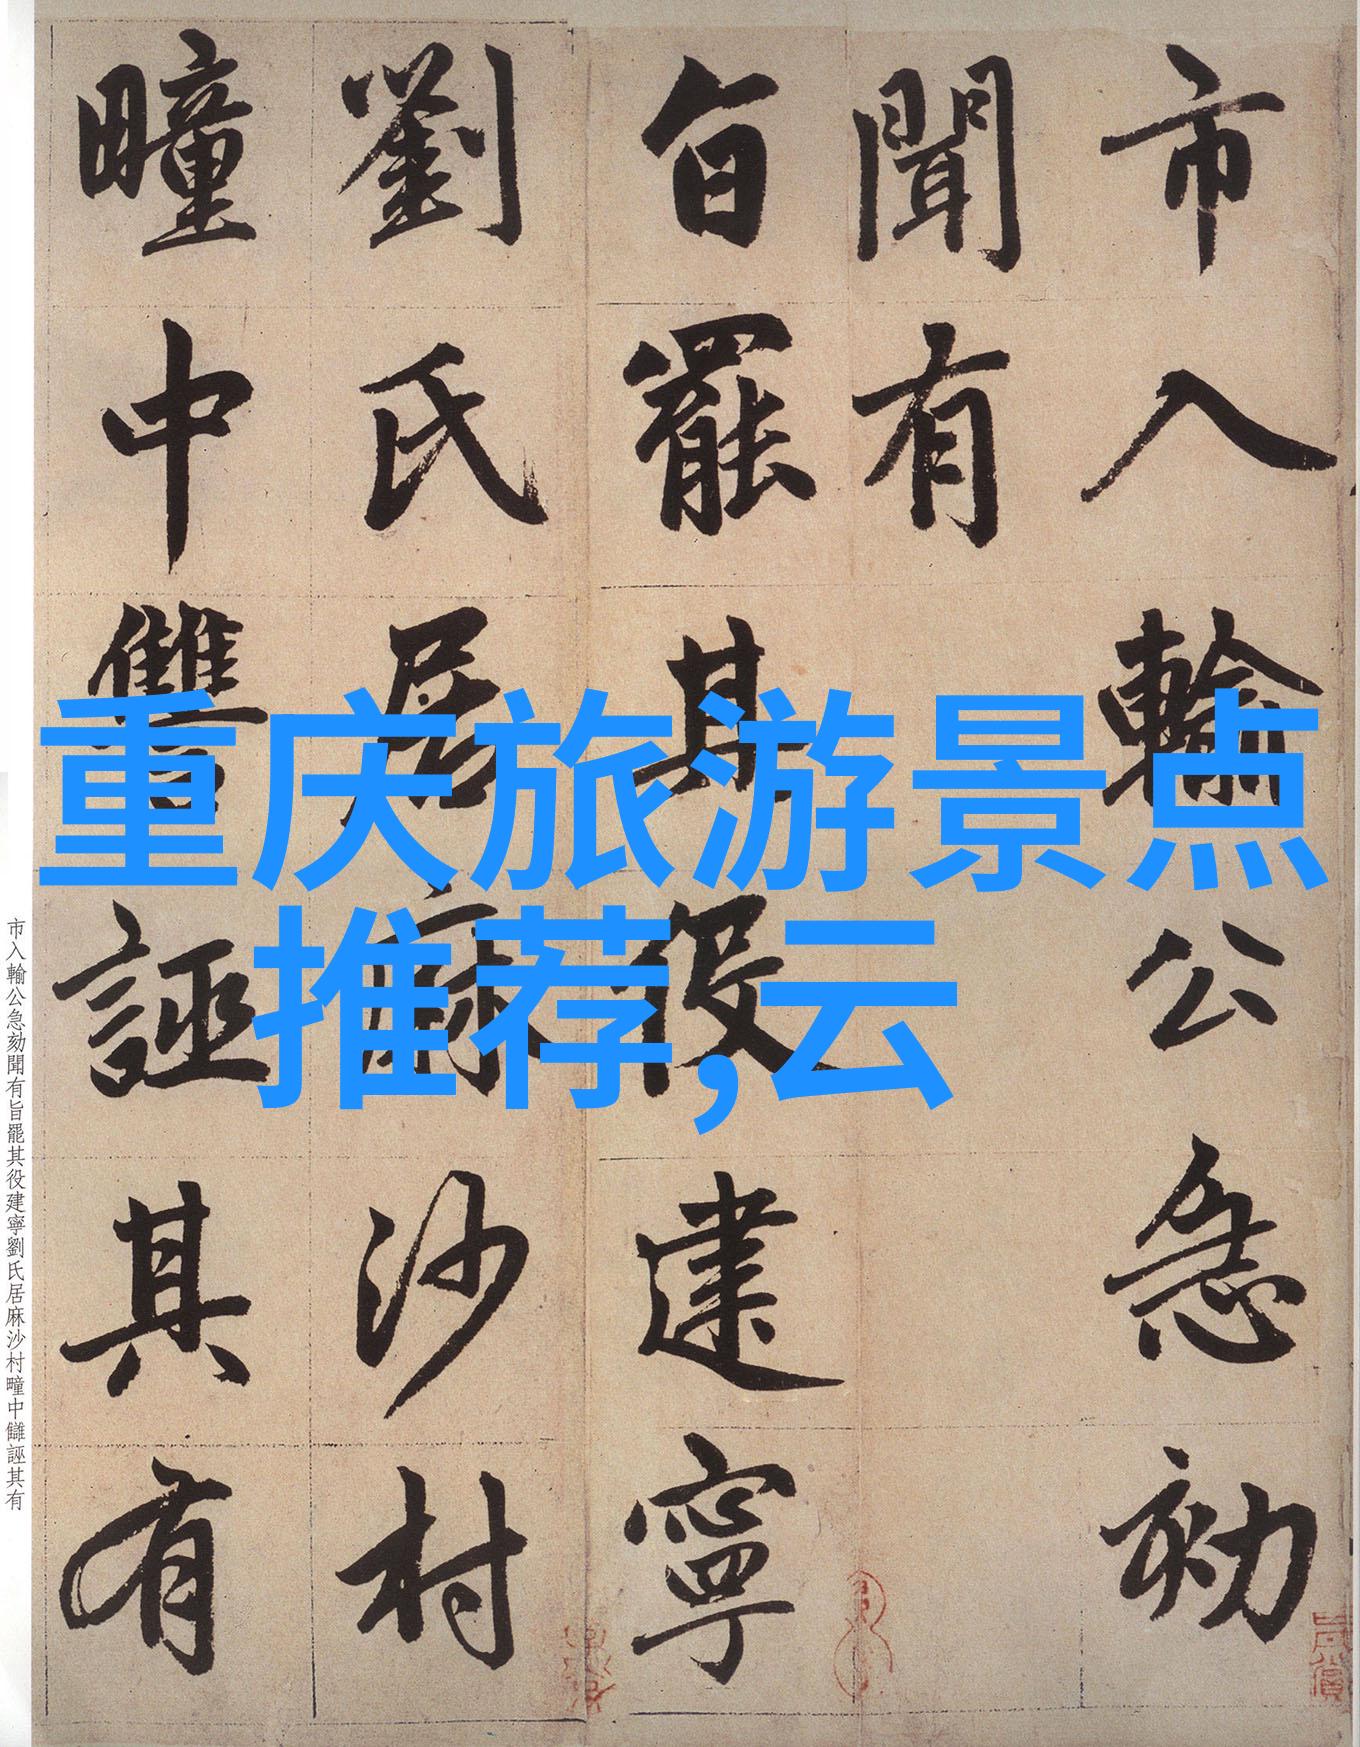 市入輸公急劾
聞有
旨罷其役建寧
劉氏居麻沙村
疃中讎誣其有
重庆旅游景点
推荐,云
市入輸公急劾聞有旨罷其役建寧劉氏居麻沙村疃中讎誣其有